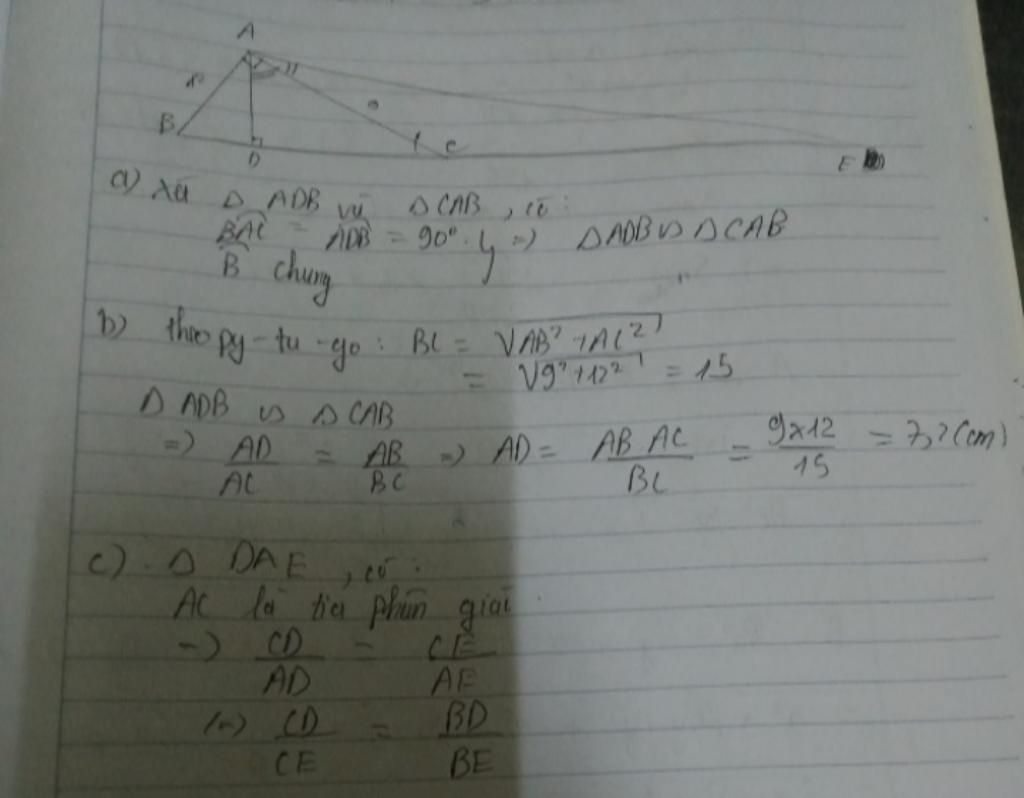 A
B
D
C
E
a) Xét Δ ADB và Δ CAB, có:
BAC = ADB = 90°. } => ΔADB ∽ ΔCAB
B chung
b) theo py-ta-go: BC = √AB² + AC²
= √9² + 12² = 15
Δ ADB ∽ Δ CAB
=> AD/AC = AB/BC => AD = AB.AC/BC = 9x12/15 = 7,2 (cm)
c). Δ DAE, có:
AC là tia phân giác
=> CD/AD = CE/AE
(=) CD/CE = BD/BE